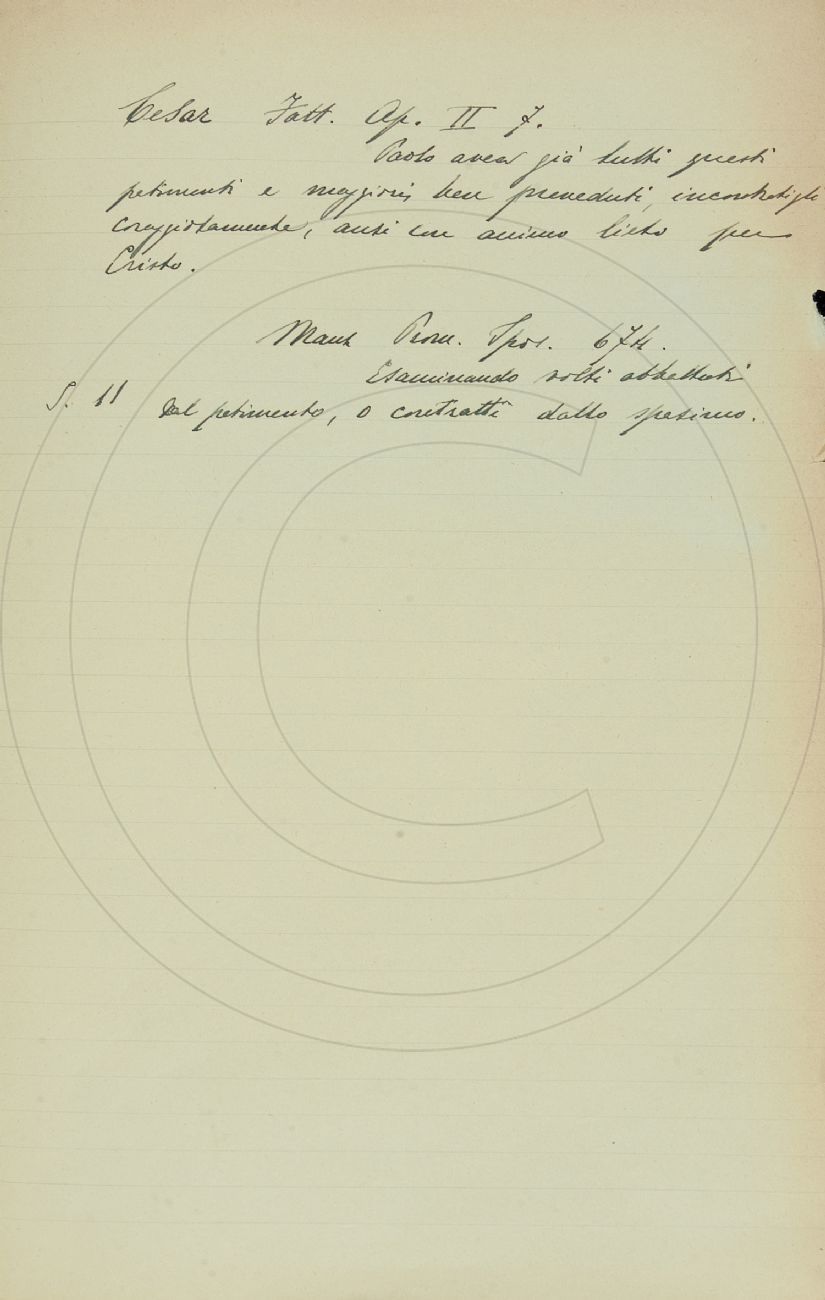 Cesar Fatt. Ap. II 7.
Paolo avea già tutti questi
patimenti e maggiori ben preveduti, incontratigli
coraggiosamente, anzi con animo lieto per
Cristo.
Manz Prom. Spos. 674.
Esaminando volti abbattuti
S. 11 dal patimento, o contratti dallo spasimo.